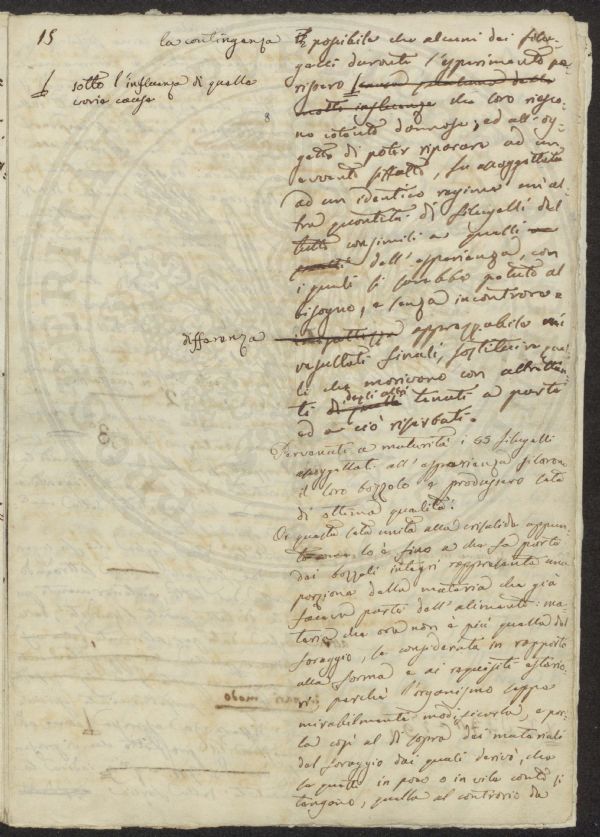 15
la contingenza
sotto l'influenza di quelle
varie cause
8
È possibile che alcuni dei filu-
gelli durante l'esperimento pe-
rissero senza
molto influenza che loro riesco-
no cotanto dannose, ed all'og-
getto di poter riparare ad un
evento siffatto, fu assoggettata
ad un identico regime un'al-
tra quantità di filugelli del
tutto consimili a quelli
dell'esperienza, con
i quali si sarebbe potuto al
bisogno, e senza incontrare
differenza
apprezzabile nei
resultati finali, sostituire quel-
li che morivono con altrettan-
ti degli altri
tenuti a parte
ed a ciò riserbati.
Pervenuti a maturità i 45 filugelli
assoggettati all'esperienza filarono
il loro bozzolo e produssero seta
di ottima qualità.
Or questa seta unita alla crisalide appun-
to lo è fino a che fa parte
dei bozzoli integri rappresenta una
porzione della materia che già
faceva parte dell'alimento: ma-
teria che ora non è più quella del
foraggio, se considerata in rapporto
alla forma e ai requisiti esterio-
ri, perché l'organismo seppe
mirabilmente modificarla, e por-
la così al di sopra dei materiali
del foraggio dai quali derivò, che
se questi in poco o in vile conto si
tengono, quella al contrario da